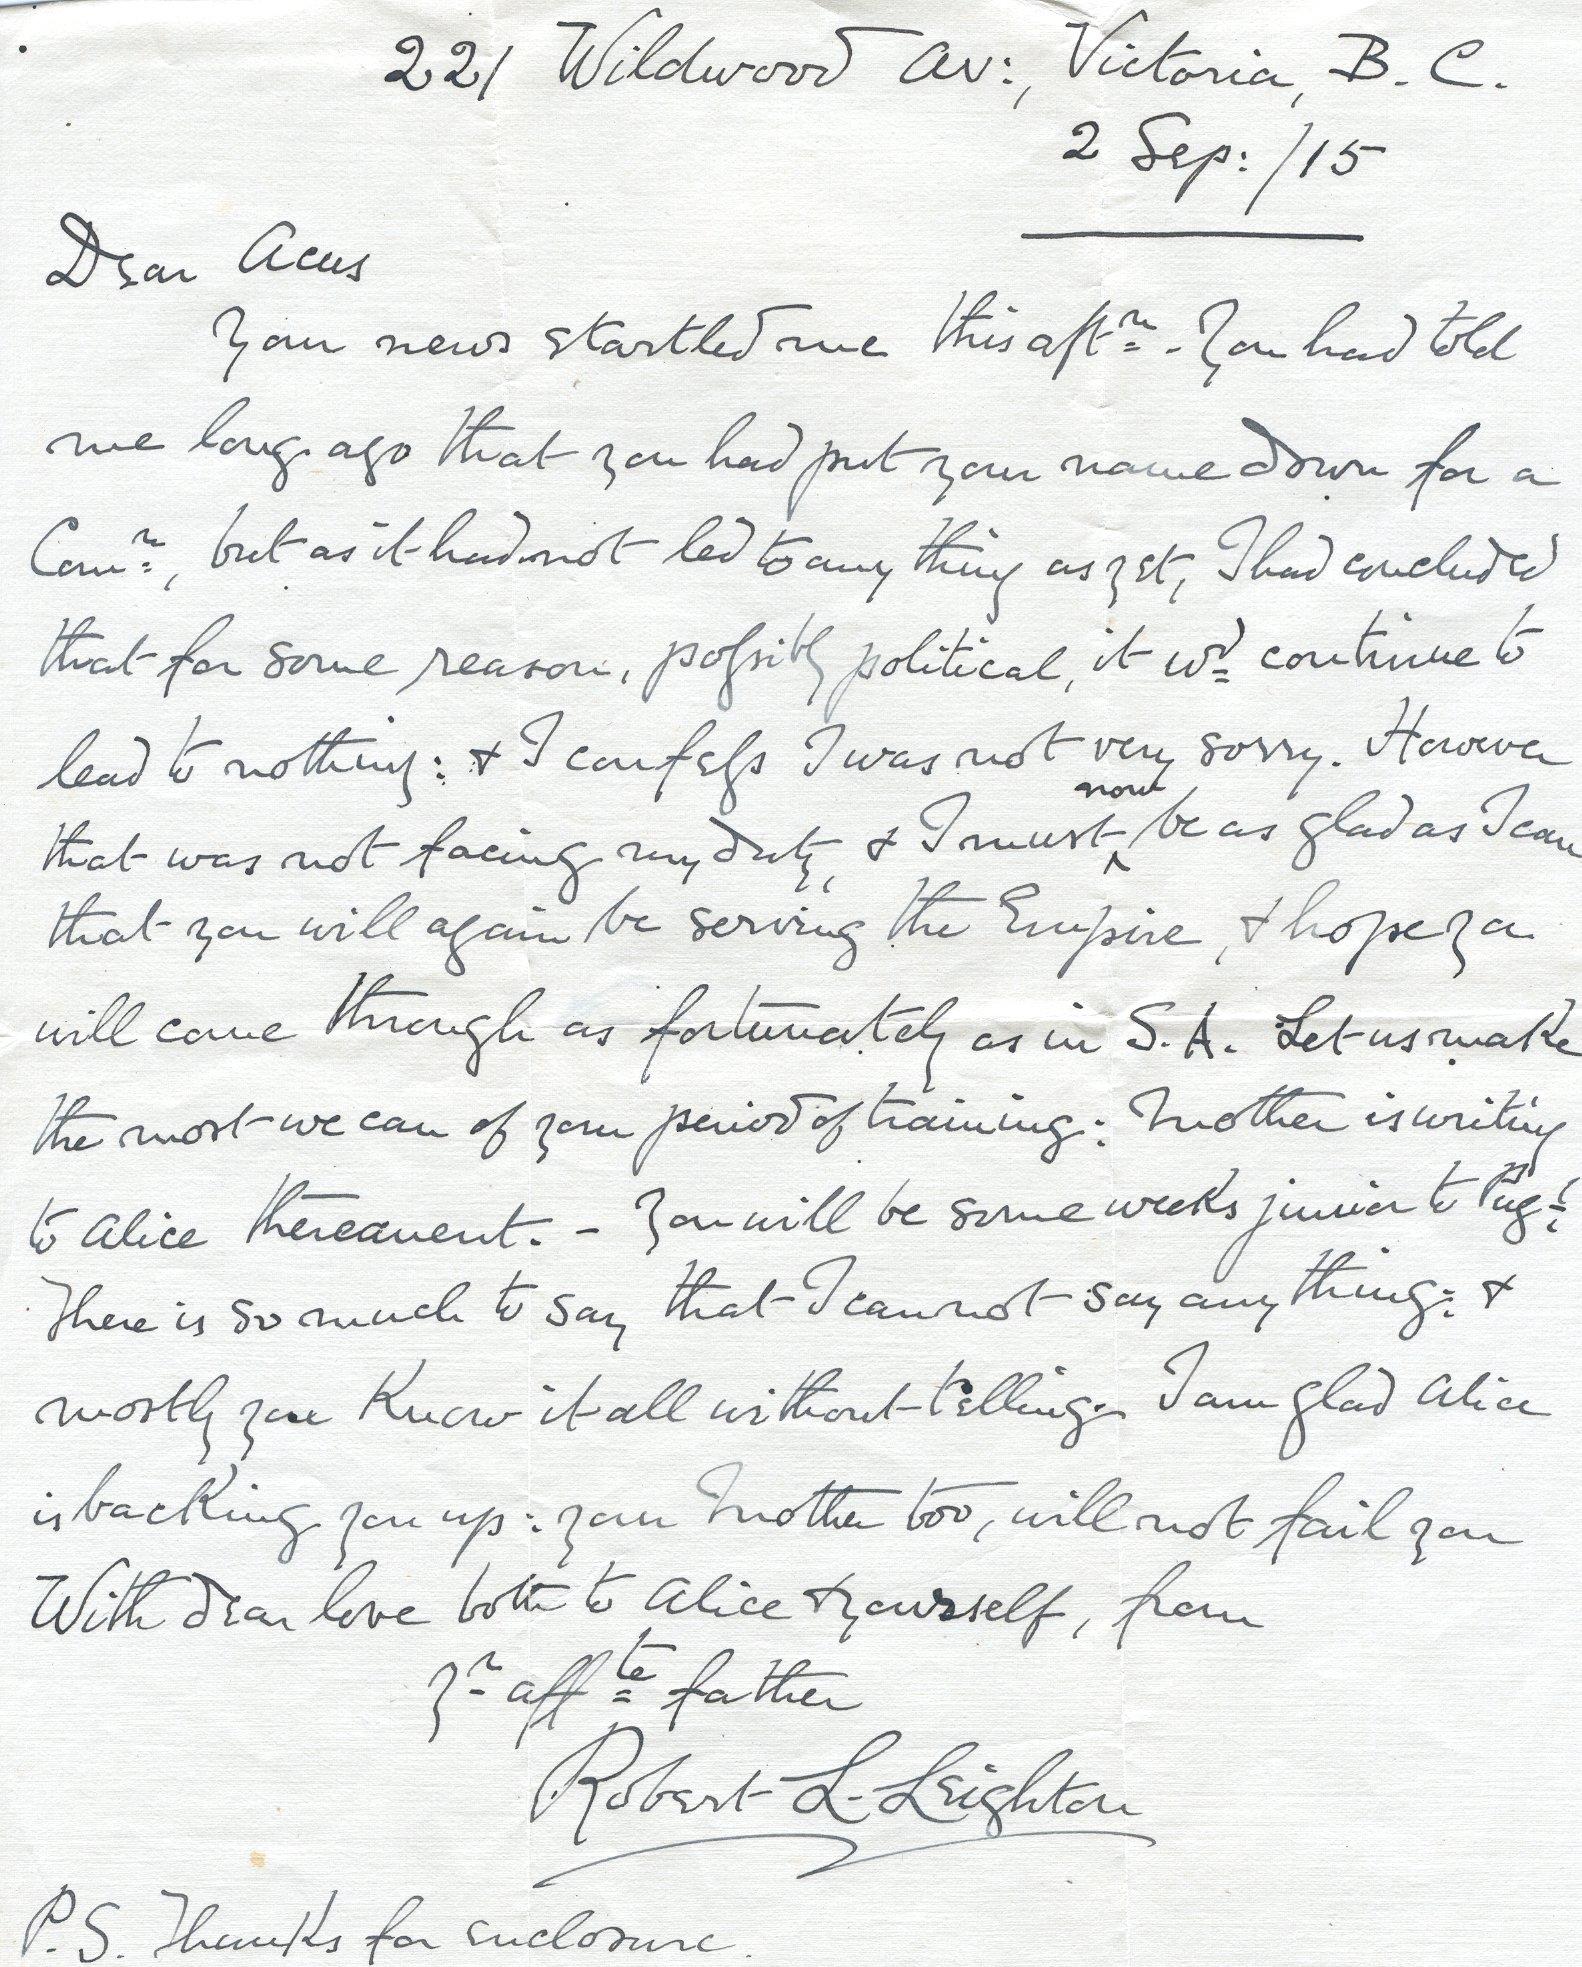 221 Wildwood Av:, Victoria, B.C.
2 Sep: /15
Dear Acus
Your news startled me this aftn. You had told
me long ago that you had put your name down for a
Comn:, but as it had not led to any thing as yet, I had concluded
that for some reason, possibly political, it wd continue to
lead to nothing: & I confess I was not very sorry. However
that was not facing my duty, & I must now be as glad as I can
that you will again be serving the Empire, & hope you
will come through as fortunately as in S.A. Let us make
the most we can of your period of training: Mother is writing
to Alice thereanent. - You will be some weeks junior to
There is so much to say that I cannot say any thing: &
mostly you Know it all without telling. I am glad Alice
is backing you up: your Mother too, will not fail you
With dear love both to Alice & yourself, from
yr affte father
Robert L. Leighton
P.S. Thanks for enclosure.